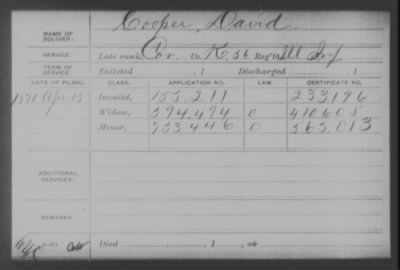 NAME OF SOLDIER: Cooper, David
SERVICE: Late rank, Cor. Co. K, 56 Reg't Ill. Inf
TERM OF SERVICE: Enlisted , 1 Discharged , 1
DATE OF FILING. CLASS. APPLICATION NO. LAW. CERTIFICATE NO.
Invalid, 155,211 233196
1890 Apr 15 Widow, 394,494 0 410,608
Minor, 733,446 0 563,013
ADDITIONAL SERVICES:
REMARKS:
Died , 1 , at